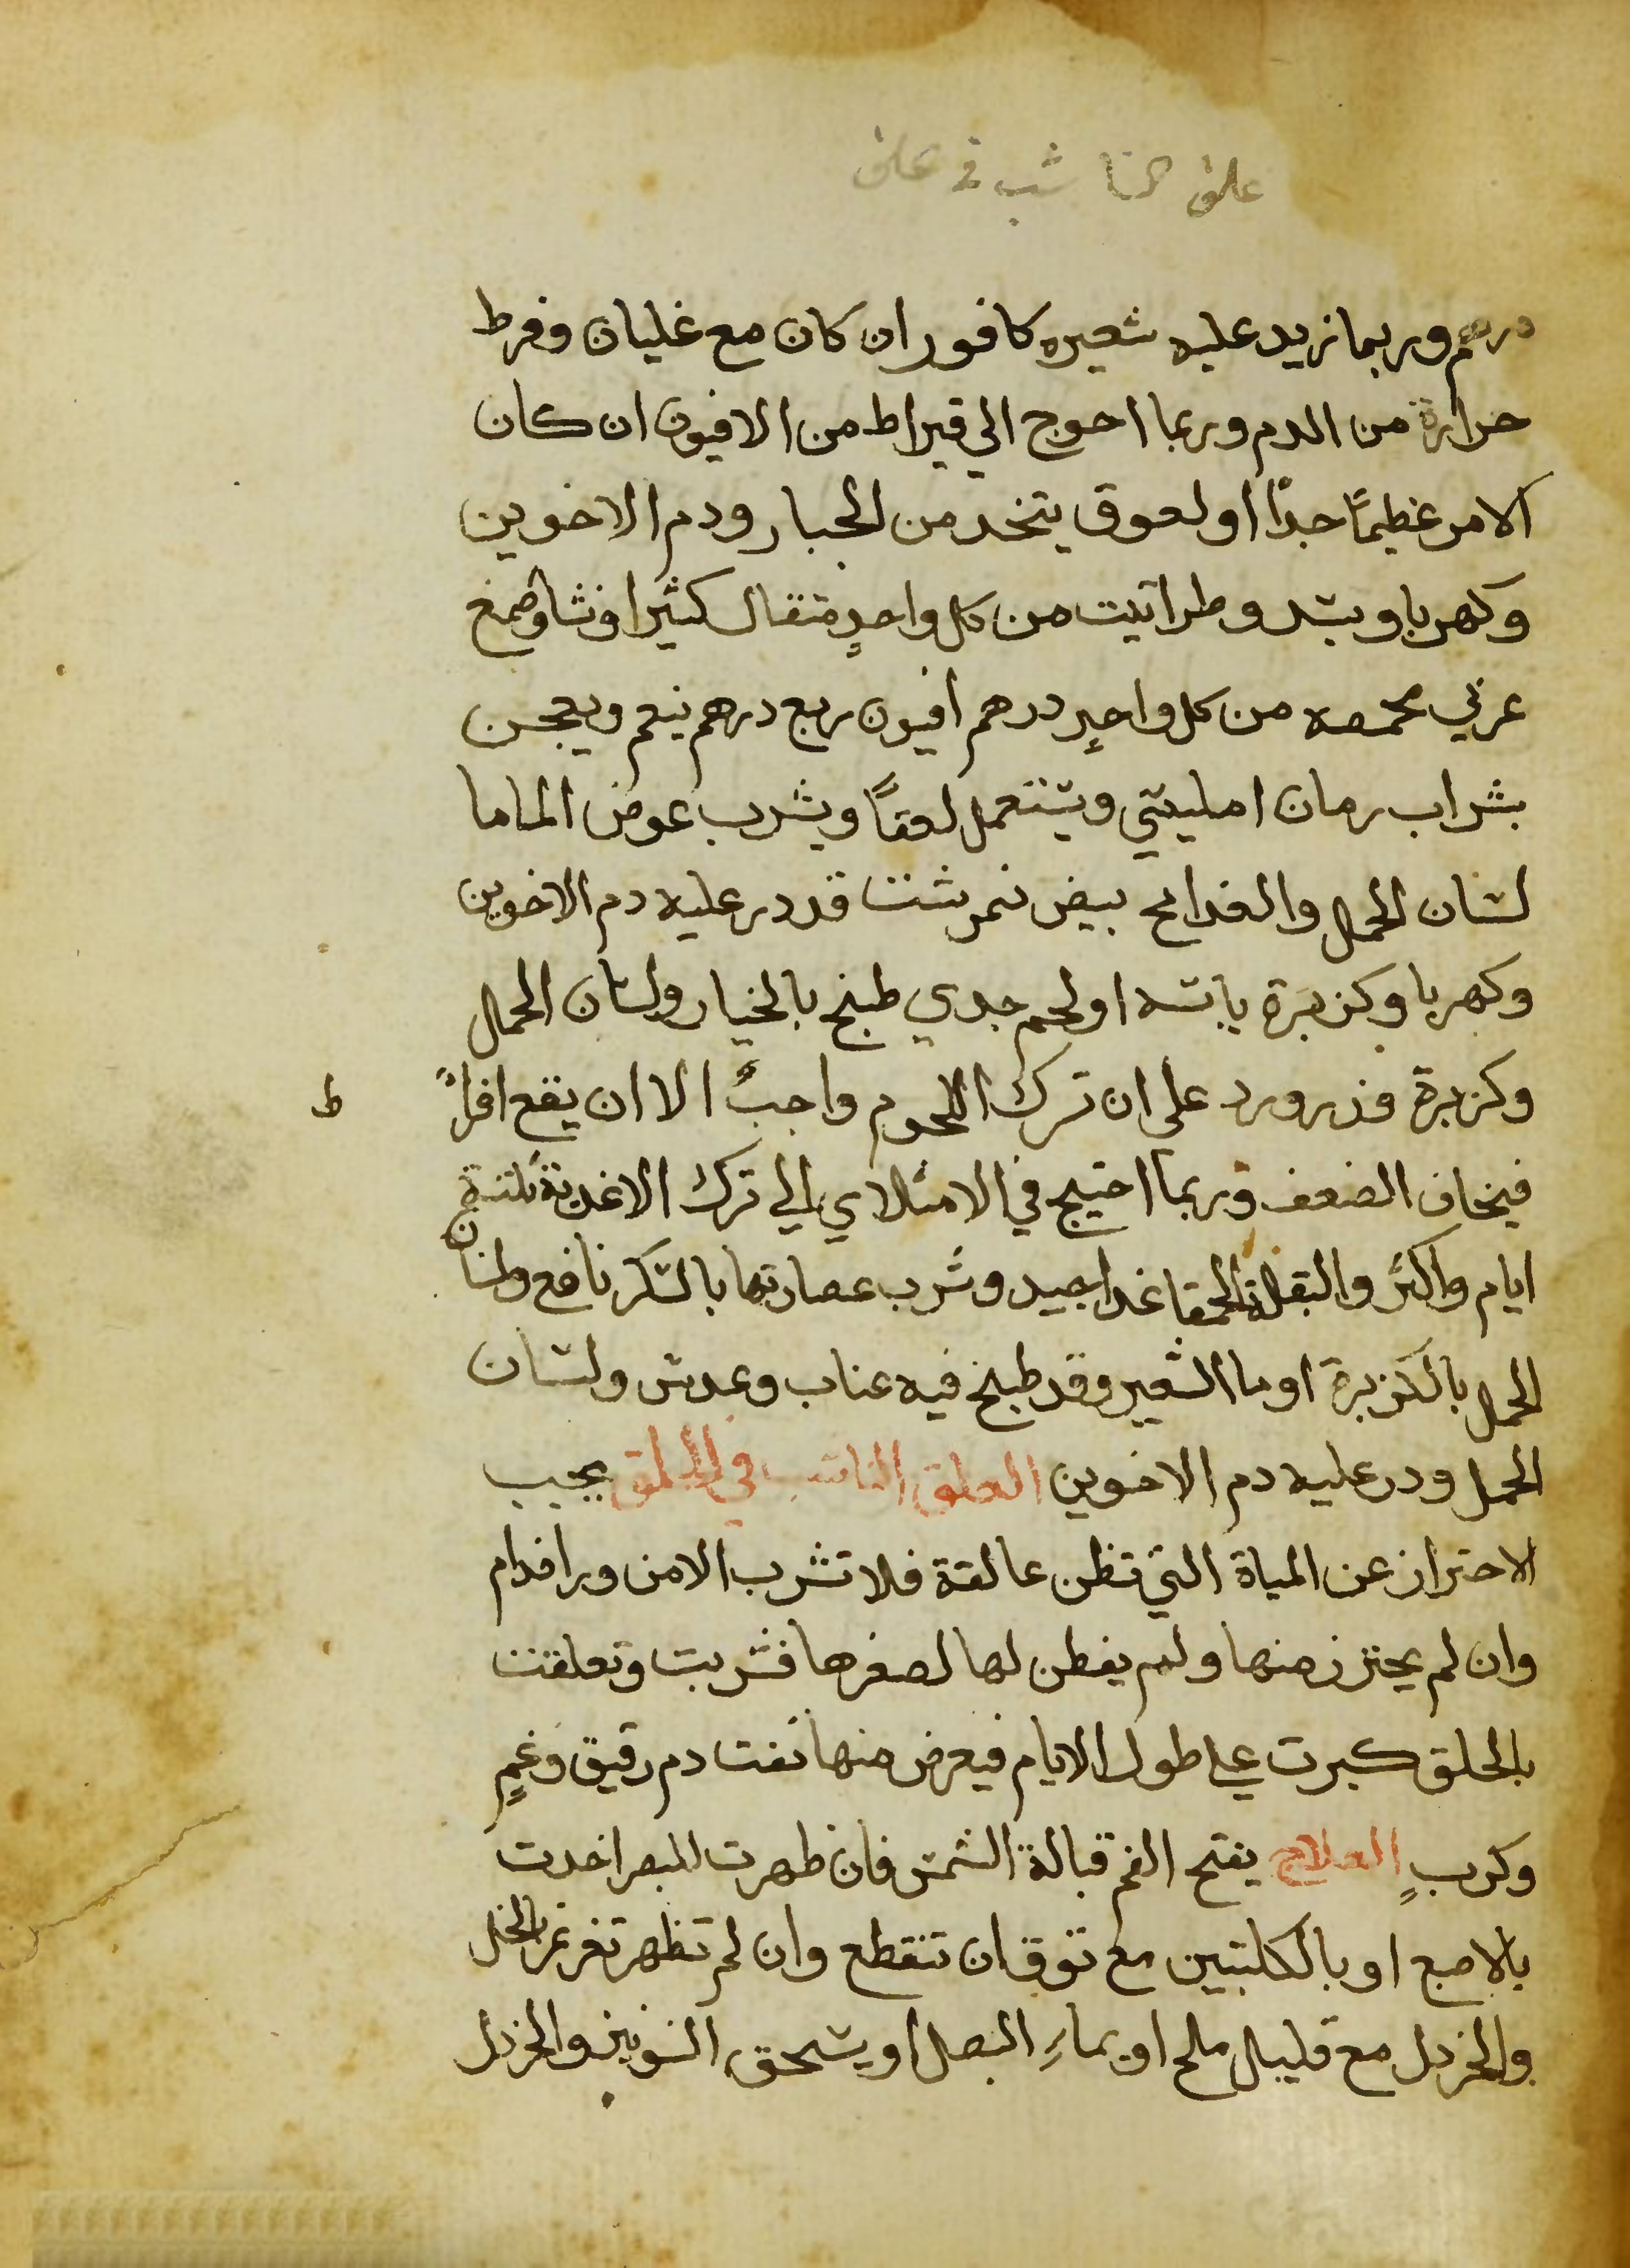 علق الناشب في علق
درهم وربما زيد عليه شعيره كافور ان كان مع غليان وفرط
حرارة من الدم وربما احوج الي قيراط من الافيون ان كان
الامر عظيمًا جدًا او لعوق يتخد من الجبار ودم الاخوين
وكهربا وبسد وطراتيت من كل واحدٍ متقال كثيرا ونشا وصمغ
عربي محمصه من كل واحدٍ درهم افيون ربع درهم ينعم ويعجن
بشراب رمان امليسي ويستعمل لعقًا ويشرب عوض الما ما
لسان الحمل والغدا مح بيض نمرشت قد در عليه دم الاخوين
وكهربا وكزبرة يابسه او لحم جدي طبخ بالخيار ولسان الحمل
وكزبرة وزرورد علي ان ترك اللحوم واجبٌ الا ان يقع افراطً
فيخاف الضعف وربما احتيج في الامتلاي الي ترك الاغدية ثلثة
ايام واكثر والبقلة الحمقا غدا جيد وشرب عصارتها بالسكر نافع ولسان
الحمل بالكزبرة او ما الشعير وقد طبخ فيه عناب وعدس ولسان
الحمل ودر عليه دم الاخوين العلق الناشب في الحلق يجب
الاحتراز عن المياة التي تظن عالقة فلا تشرب الا من ورا فدام
وان لم يحترز منها ولم يفطن لها لصغرها فشربت وتعلقت
بالحلق كبرت علي طول الايام فيعرض منها نفت دم رقيق وغمٍ
وكربٍ العلاج يفتح الفم قبالة الشمس فان ظهرت للبصر اخدت
بالاصبع او بالكلبتين مع توق ان تنقطع وان لم تظهر تغرغر بالخل
والخردل مع قليل ملح او بماءِ البصل او يسحق الشونيز والخردل